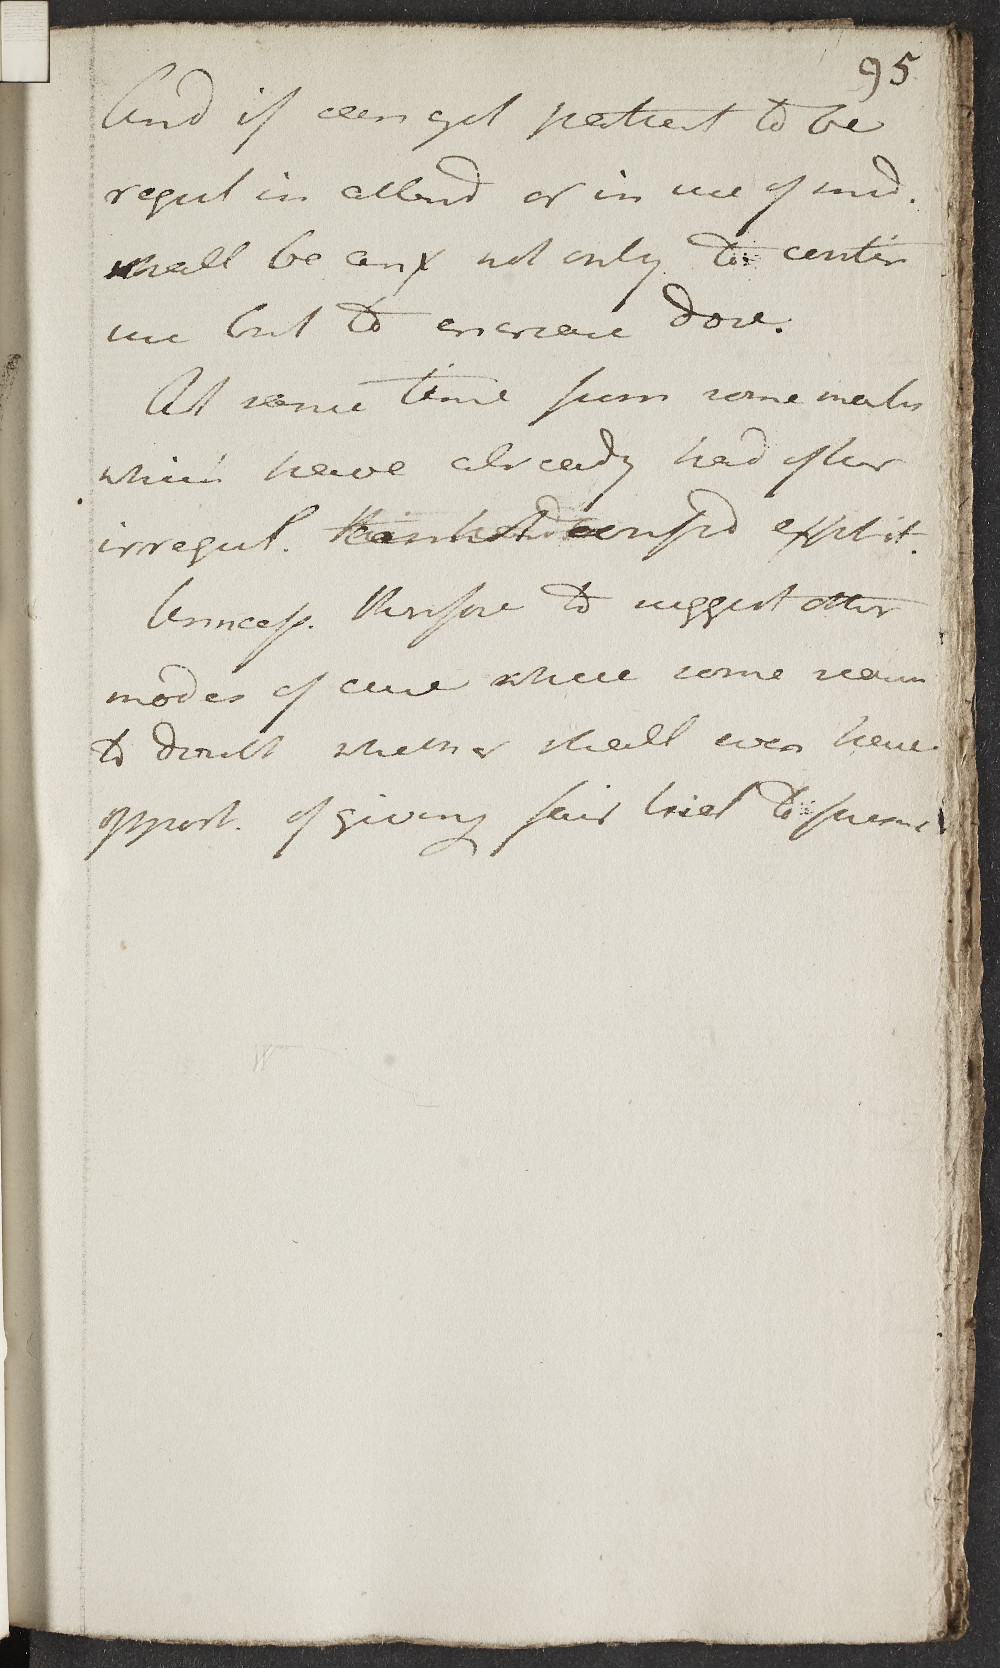 95
And if can get patient to be
regul in attend or in use of med.
shall be anx not only to contin
use but to increase dose.
At same time from some marks
which have already had of her
irregul. confid explicit.
Unnecess. therefore to suggest other
modes of cure where some reason
to doubt whether shall even have
opport. of giving fair trial to